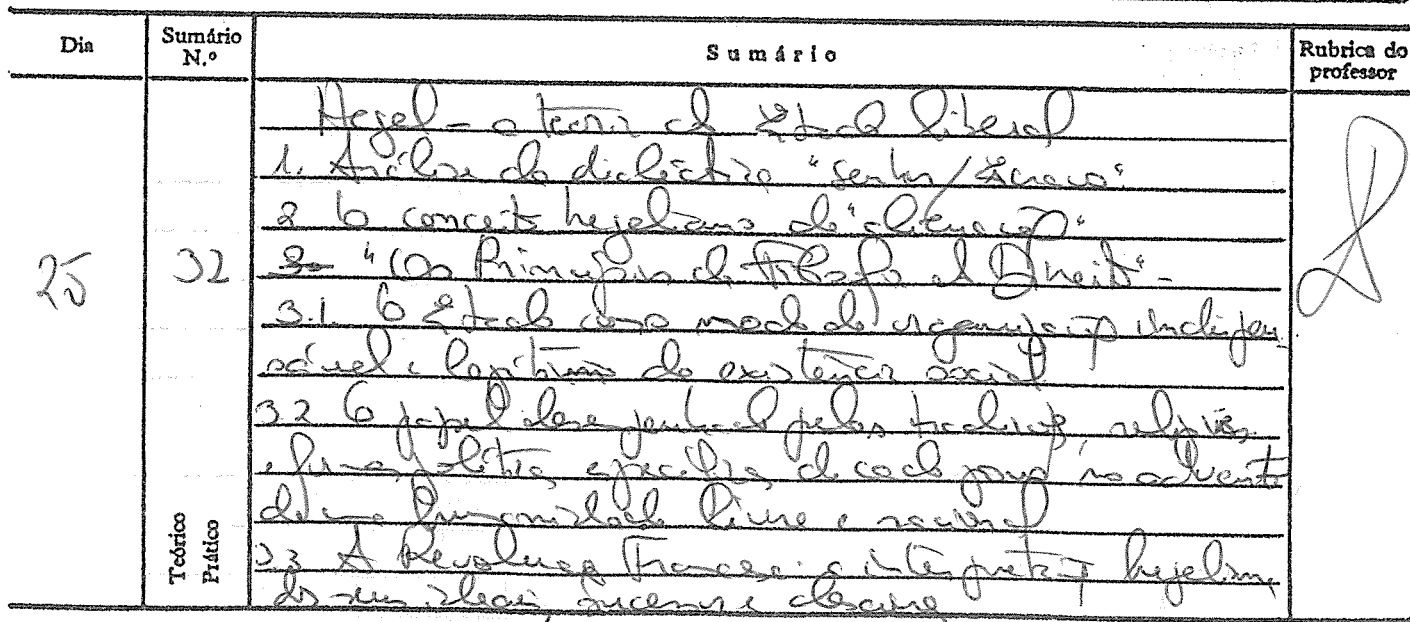 Dia
Sumário N.º
Sumário
Rubrica do professor
25
32
Teórico
Prático
Hegel - a teoria do Estado liberal
1. Análise da dialéctica "Senhor/Escravo"
2 O conceito hegeliano de "alienação"
3- "Os Princípios da Filosofia do Direito" -
3.1. O Estado como modo de organização indispen
sável e legítimo da existência social
3.2 O papel desempenhado pelas tradições, religiões
e forma política específica de cada povo no advento
de uma humanidade livre e racional
3.3 A Revolução Francesa: a interpretação hegeliana
dos seus ideais, sucesso e